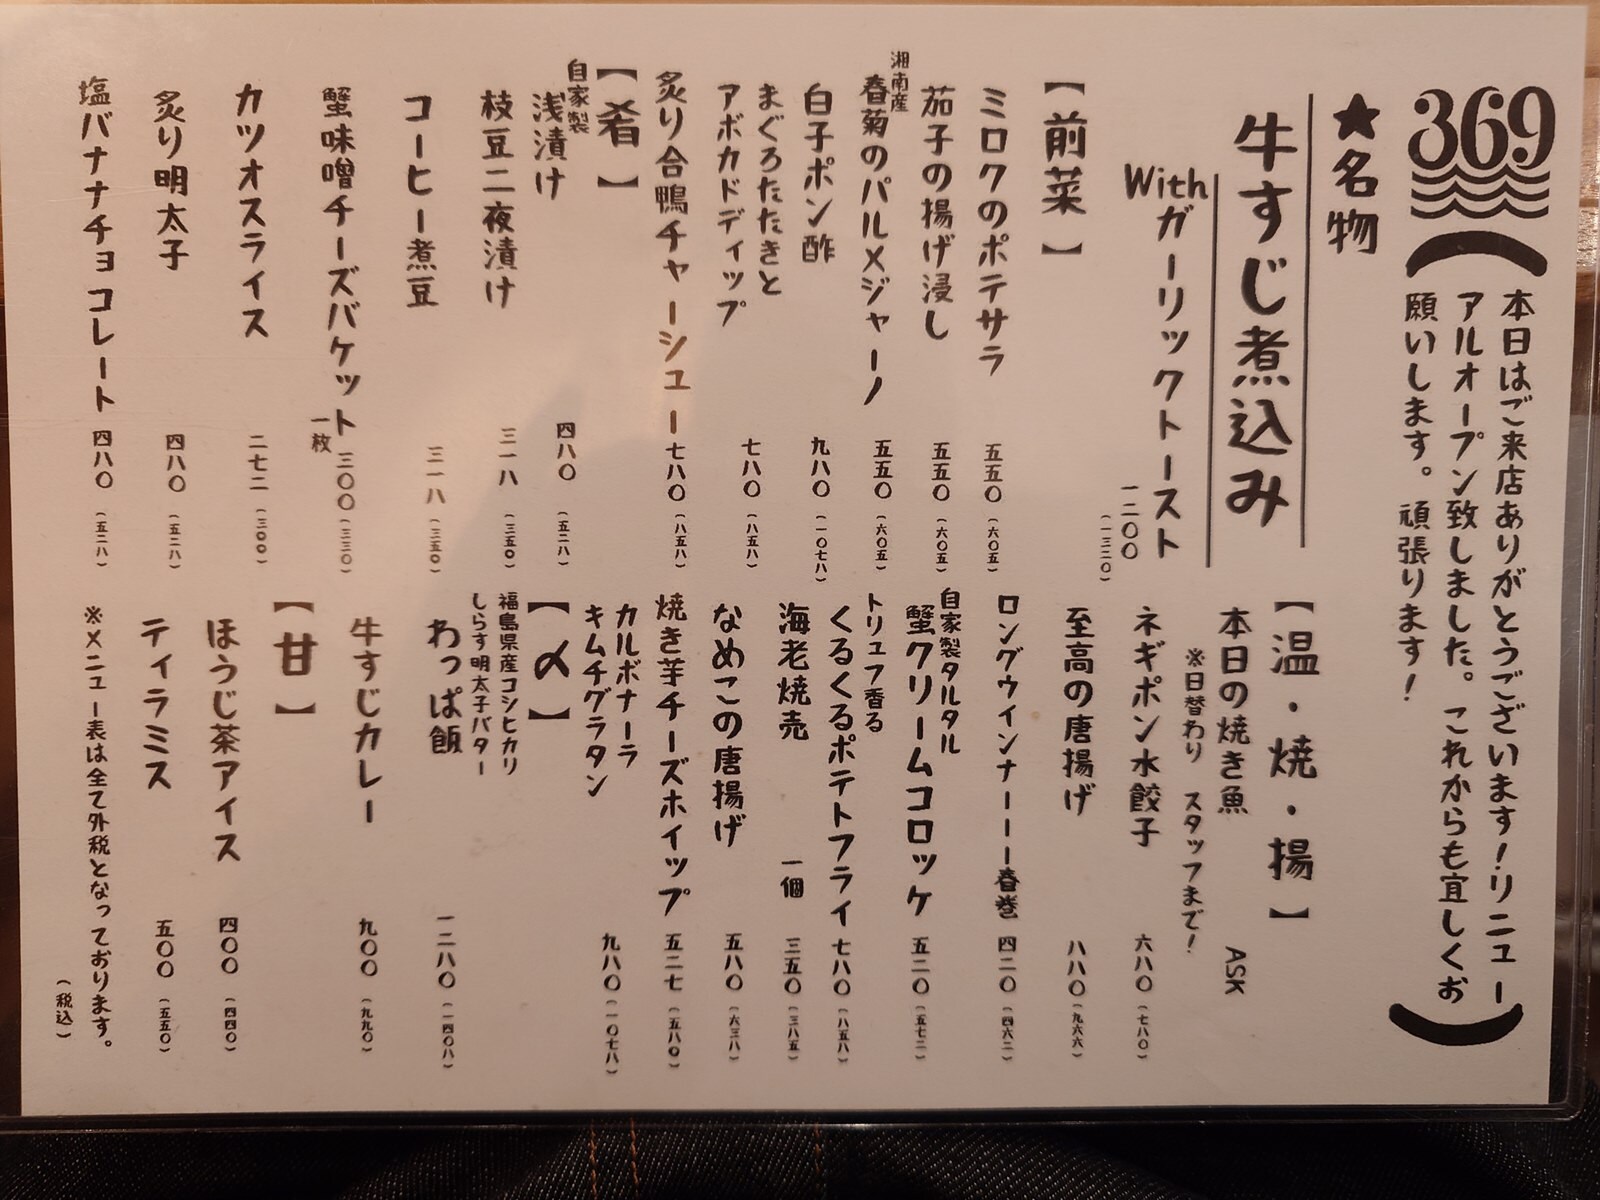 369
本日はご来店ありがとうございます！リニュー
アルオープン致しました。これからも宜しくお
願いします。頑張ります！
★名物
牛すじ煮込み
Withガーリックトースト
一二〇〇（一三二〇）
【前菜】
ミロクのポテサラ 五五〇（六〇五）
茄子の揚げ浸し 五五〇（六〇五）
湘南産
春菊のパルメジャーノ 五五〇（六〇五）
白子ポン酢 九八〇（一〇七八）
まぐろたたきと
アボカドディップ 七八〇（八五八）
炙り合鴨チャーシュー 七八〇（八五八）
【肴】
自家製
浅漬け 四八〇（五二八）
枝豆二夜漬け 三一八（三五〇）
コーヒー煮豆 三一八（三五〇）
蟹味噌チーズバケット 一枚 三〇〇（三三〇）
カツオスライス 二七二（三〇〇）
炙り明太子 四八〇（五二八）
塩バナナチョコレート 四八〇（五二八）
【温・焼・揚】
本日の焼き魚 ASK
※日替わり スタッフまで！
ネギポン水餃子 六八〇（七八〇）
至高の唐揚げ 八八〇（九六六）
ロングウインナーー春巻 四二〇（四六二）
自家製タルタル
蟹クリームコロッケ 五二〇（五七二）
トリュフ香る
くるくるポテトフライ 七八〇（八五八）
海老焼売 一個 三五〇（三八五）
なめこの唐揚げ 五八〇（六三八）
焼き芋チーズホイップ 五二七（五八〇）
カルボナーラ
キムチグラタン 九八〇（一〇七八）
【〆】
福島県産コシヒカリ
しらす明太子バター
わっぱ飯 一二八〇（一四〇八）
牛すじカレー 九〇〇（九九〇）
【甘】
ほうじ茶アイス 四〇〇（四四〇）
ティラミス 五〇〇（五五〇）
※メニュー表は全て外税となっております。
（税込）